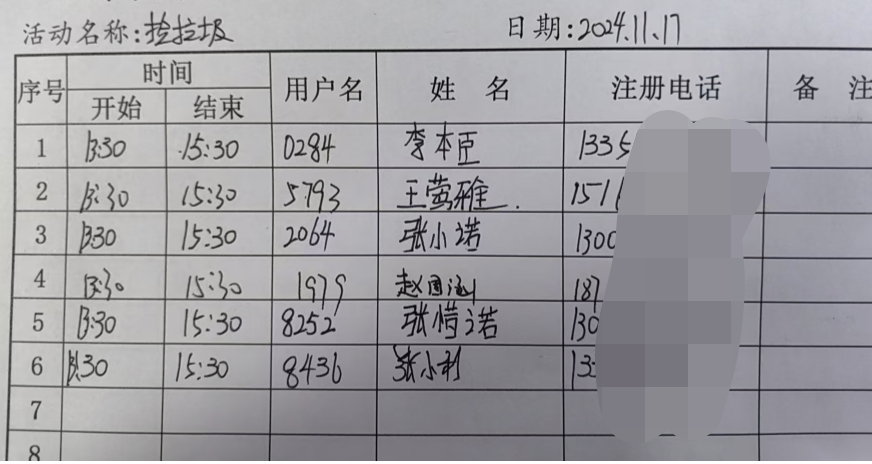 活动名称:捡垃圾 日期:2024.11.17
序号 时间 用户名 姓 名 注册电话 备 注
开始 结束
1 13:30 15:30 0284 李本臣 1335
2 13:30 15:30 5793 王莺雅. 151
3 13:30 15:30 2064 张小诺 1300
4 13:30 15:30 1979 赵国 187
5 13:30 15:30 8252 张惜诺 130
6 13:30 15:30 8436 张小利 13
7
8